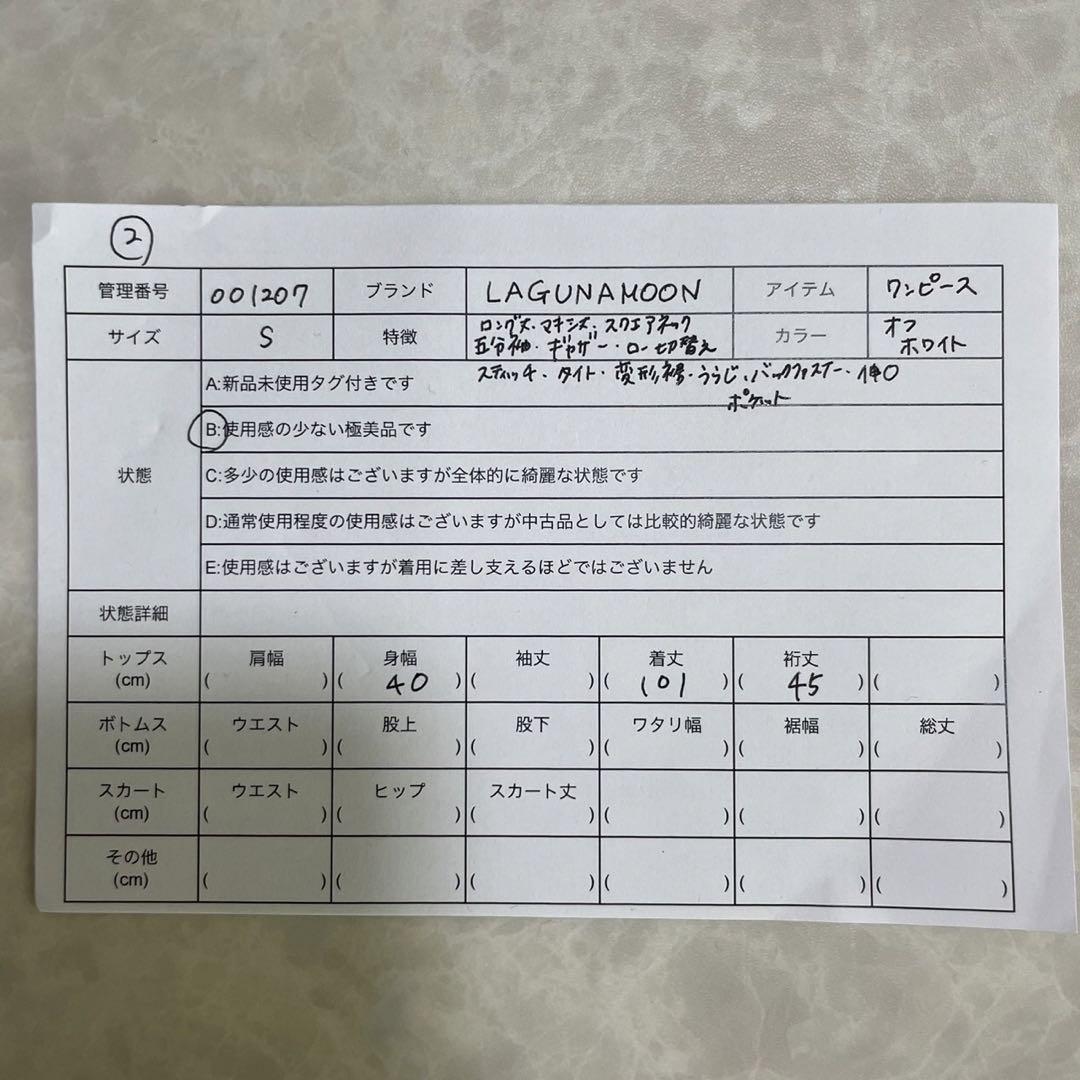 ②
管理番号 001207 ブランド LAGUNAMOON アイテム ワンピース
サイズ S 特徴 ロング丈・マキシ丈・スクエアネック カラー オフ
五分袖・ギャザー・ロー切替え ホワイト
スティッチ・タイト・変形裾・うらじ・バックファスナー・伸〇
ポケット
状態
A:新品未使用タグ付きです
B:使用感の少ない極美品です
C:多少の使用感はございますが全体的に綺麗な状態です
D:通常使用程度の使用感はございますが中古品としては比較的綺麗な状態です
E:使用感はございますが着用に差し支えるほどではございません
状態詳細
トップス 肩幅 身幅 袖丈 着丈 裄丈
(cm) ( ) ( 40 ) ( ) ( 101 ) ( 45 ) ( )
ボトムス ウエスト 股上 股下 ワタリ幅 裾幅 総丈
(cm) ( ) ( ) ( ) ( ) ( ) ( )
スカート ウエスト ヒップ スカート丈
(cm) ( ) ( ) ( ) ( ) ( ) ( )
その他
(cm) ( ) ( ) ( ) ( ) ( ) ( )